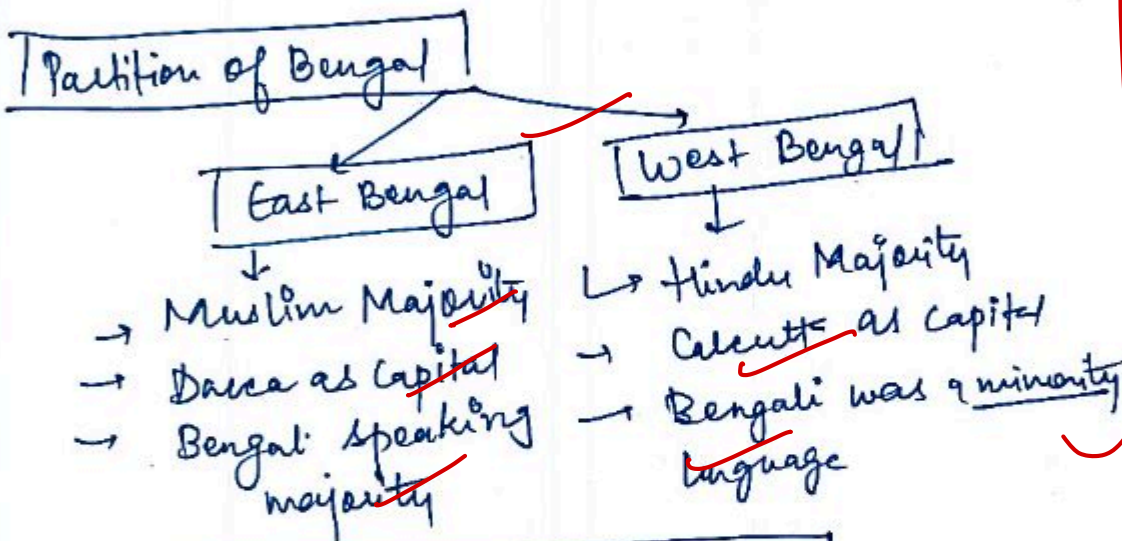 Partition of Bengal
East Bengal
West Bengal
→ Muslim Majority
→ Dacca as Capital
→ Bengali speaking
majority
↳ Hindu Majority
→ Calcutta as capital
→ Bengali was a minority
language